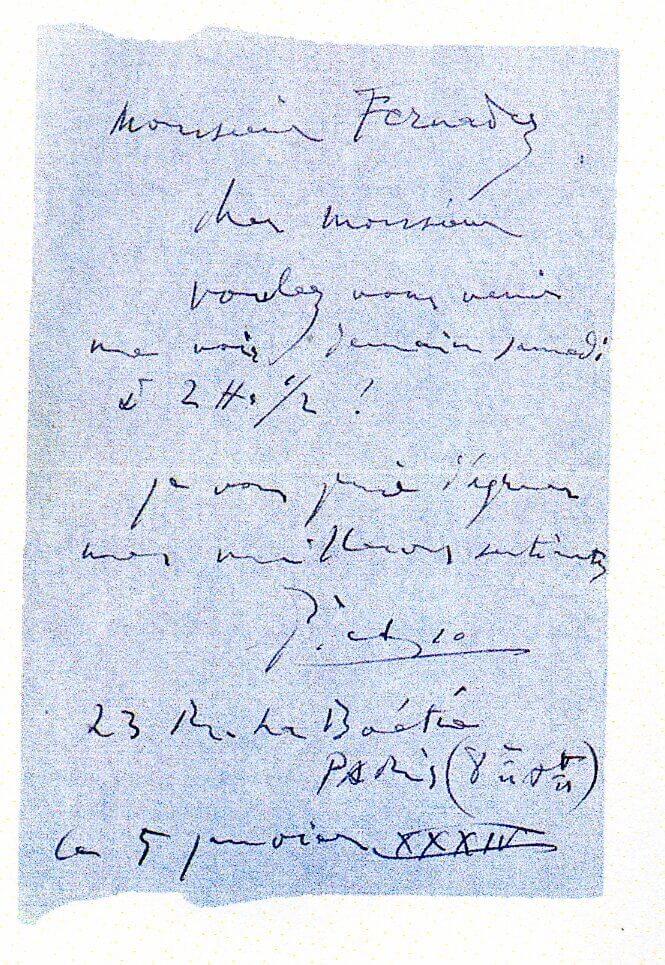 Monsieur Fernadez
cher monsieur
voulez vous venir
me voir demain samedi
à 2 Hs 1/2 ?
je vous prie d'agreer
mes meilleurs
Picasso
23 Rue La Boétie
PARis (8
le 5 janvier XXXIV